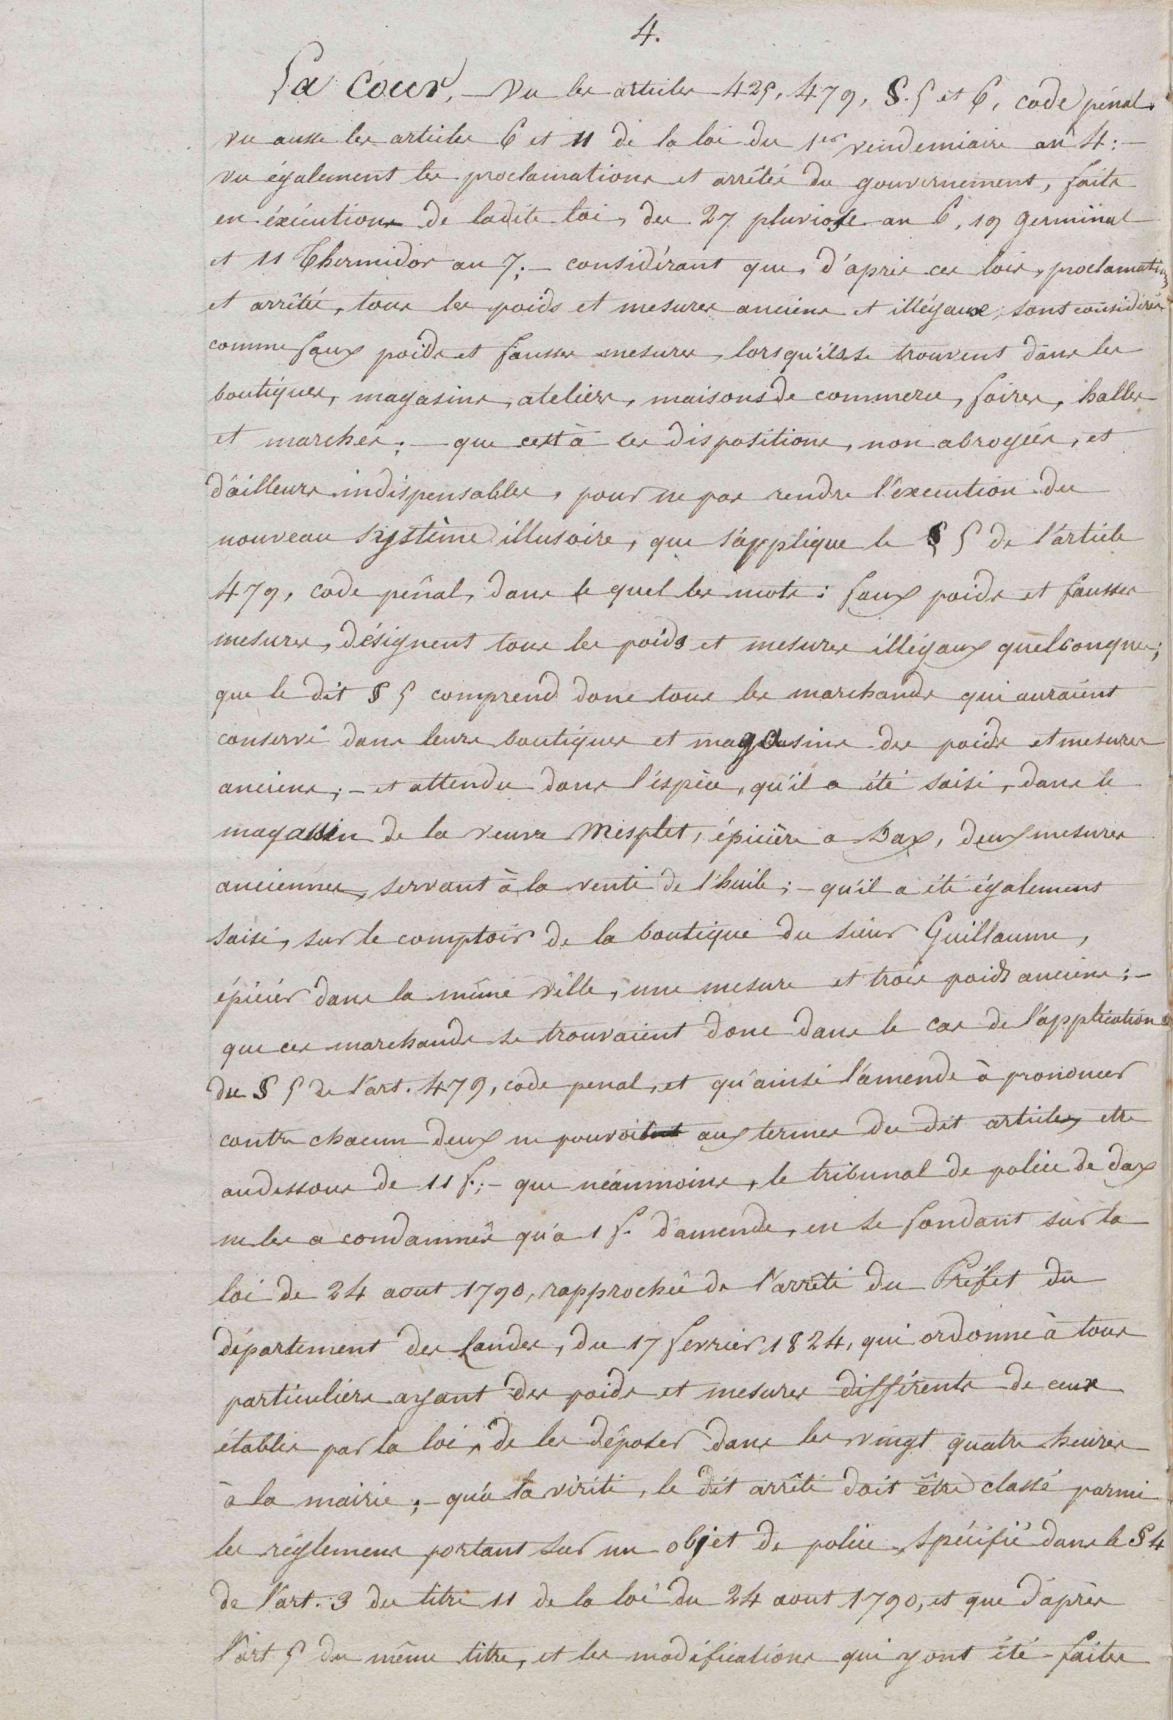 4.
La Cour, — Vu les articles 425, 479, §. 5 et 6, code pénal,
vu aussi les articles 6 et 11 de la loi du 1er vendemiaire an 4: —
vu également les proclamations et arrêtés du gouvernement, faits
en éxécution de ladite loi, des 27 pluviose an 6, 19 Germinal
et 11 Thermidor an 7; — considérant que, d'après ces lois, proclamations
et arrêtés, tous les poids et mesures anciens et illégaux, sont considérés
comme faux poids et fausses mesures, lorsqu'ils se trouvent dans les
boutiques, magasins, ateliers, maisons de commerce, foires, halles
et marchés; — que cest à ces dispositions, non abrogées, et
d'ailleurs indispensables, pour ne pas rendre l'éxecution du
nouveau système illusoire, que s'applique le § 5 de l'article
479, code pénal, dans le quel les mots: faux poids et fausses
mesures, désignent tous les poids et mesures illégaux quelconques;
que le dit § 5 comprend donc tous les marchands qui auraient
conservé dans leurs boutiques et magasins des poids et mesures
anciens; — et attendu dans l'éspèce, qu'il a été saisi, dans le
magasin de la veuve Mesplet, épicière a Dax, deux mesures
anciennes, servant à la vente de l'huile; — qu'il a été également
saisi, sur le comptoir de la boutique du sieur Guillaume,
épicier dans la même ville, une mesure et trois poids anciens; —
que ces marchands se trouvaient donc dans le cas de l'application
du § 5 de l'art. 479, code penal, et qu'ainsi l'amende à prononcer
contre chacun deux ne pouvoit aux termes du dit article, etre
audessous de 11 f.; — que néanmoins, le tribunal de police de dax
ne les a condamnés qu'a 1 f. d'amende, en se fondant sur la
loi de 24 aout 1790, rapprochée de l'arrêté du Préfet du
département des Landes, du 17 fevrier 1824, qui ordonne à tous
particuliers ayant des poids et mesures différents de ceux
établis par la loi, de les déposer dans les vingt quatre heures
à la mairie; — qu'a la vérité, le dit arrêté doit être classé parmi
les réglemens portant sur un objet de police, spécifié dans le § 4
de l'art. 3 du titre 11 de la loi du 24 aout 1790, et que d'après
l'art 5 du même titre, et les modifications qui y ont été faites